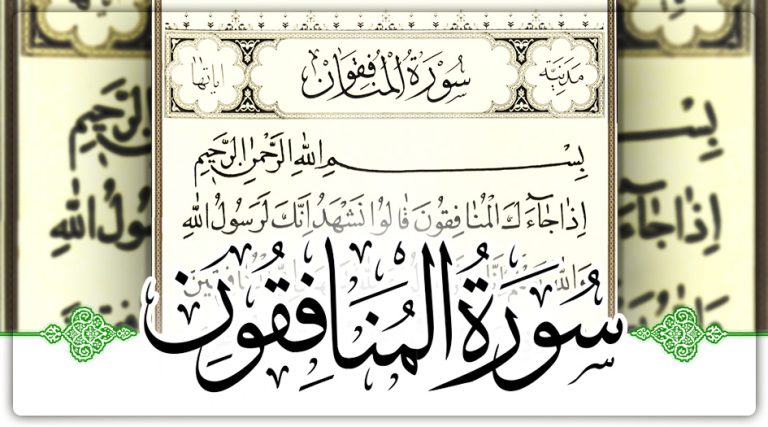 مدنية سورة المنافقون اياتها
بِسْمِ اللهِ الرَّحْمٰنِ الرَّحِيمِ
اِذَا جَاءَكَ الْمُنَافِقُونَ قَالُوا نَشْهَدُ اِنَّكَ لَرَسُولُ اللهِ
سُورَةُ المُنَافِقُون